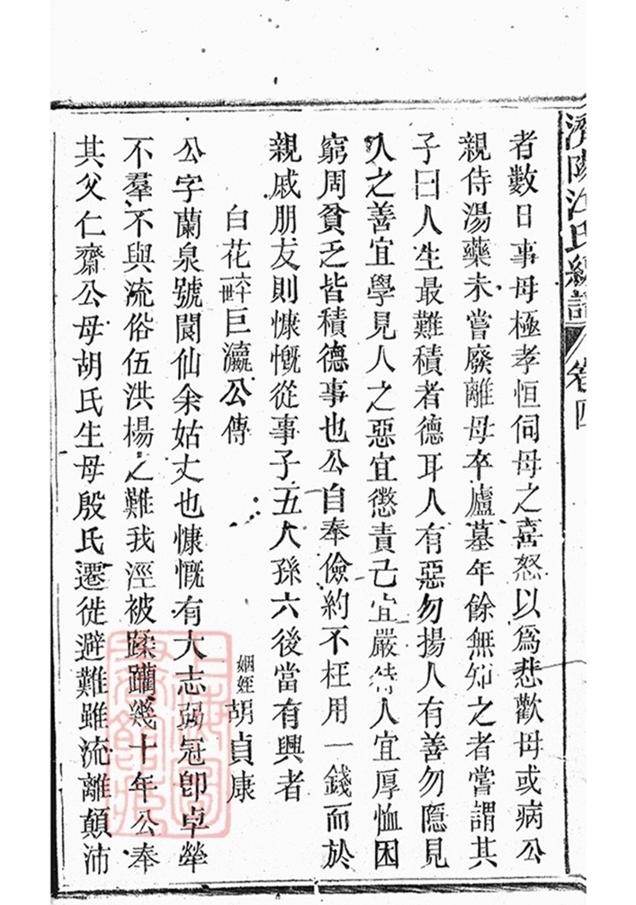 濟陽江氏總譜 卷四
者數日事母極孝恒伺母之喜怒以為悲歡母或病公
親侍湯藥未嘗廢離母卒廬墓年餘無知之者嘗謂其
子曰人生最難積者德耳人有惡勿揚人有善勿隱見
人之善宜學見人之惡宜懲責己宜嚴待人宜厚恤困
窮周貧乏皆積德事也公自奉儉約不枉用一錢而於
親戚朋友則慷慨從事子五人孫六後當有興者
白花六十世巨瀛公傳
姻姪胡貞康
公字蘭泉號閬仙余姑丈也慷慨有大志弱冠卽卓犖
不羣不與流俗伍洪楊之難我涇被蹂躪幾十年公奉
其父仁齋公母胡氏生母殷氏遷徙避難雖流離顛沛